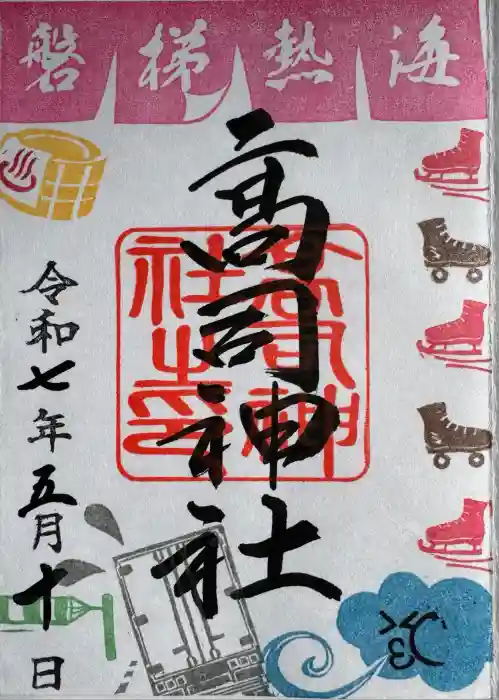 海熱梯磐
高司神社
高司神社之印
令和七年五月十日